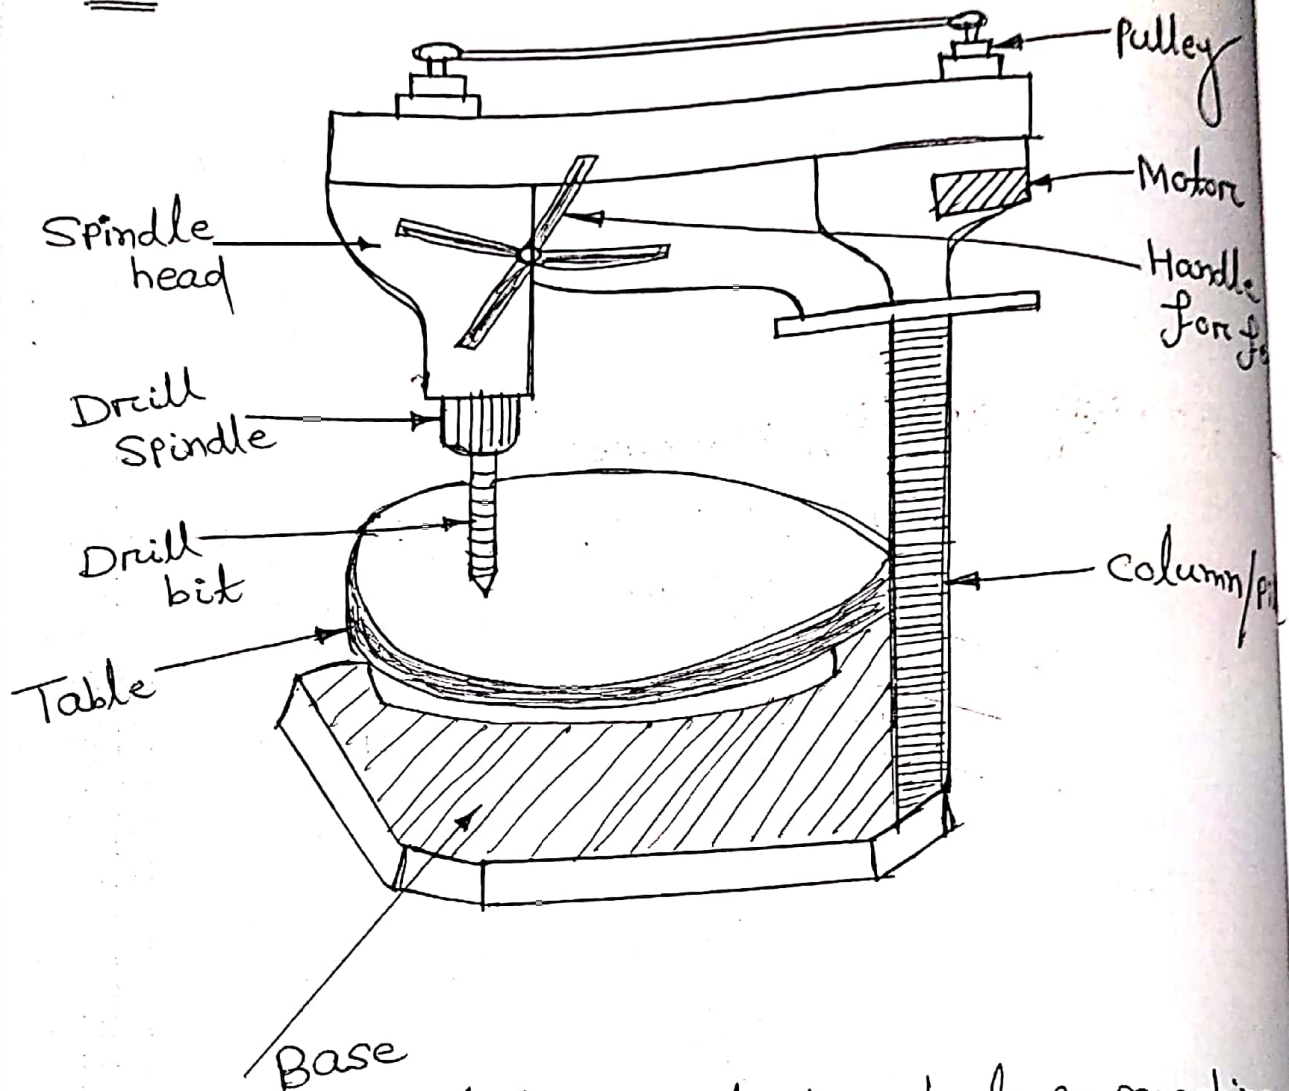 Pulley
Motor
Spindle
head
Handle
for
Drill
Spindle
Drill
bit
column/
Table
Base